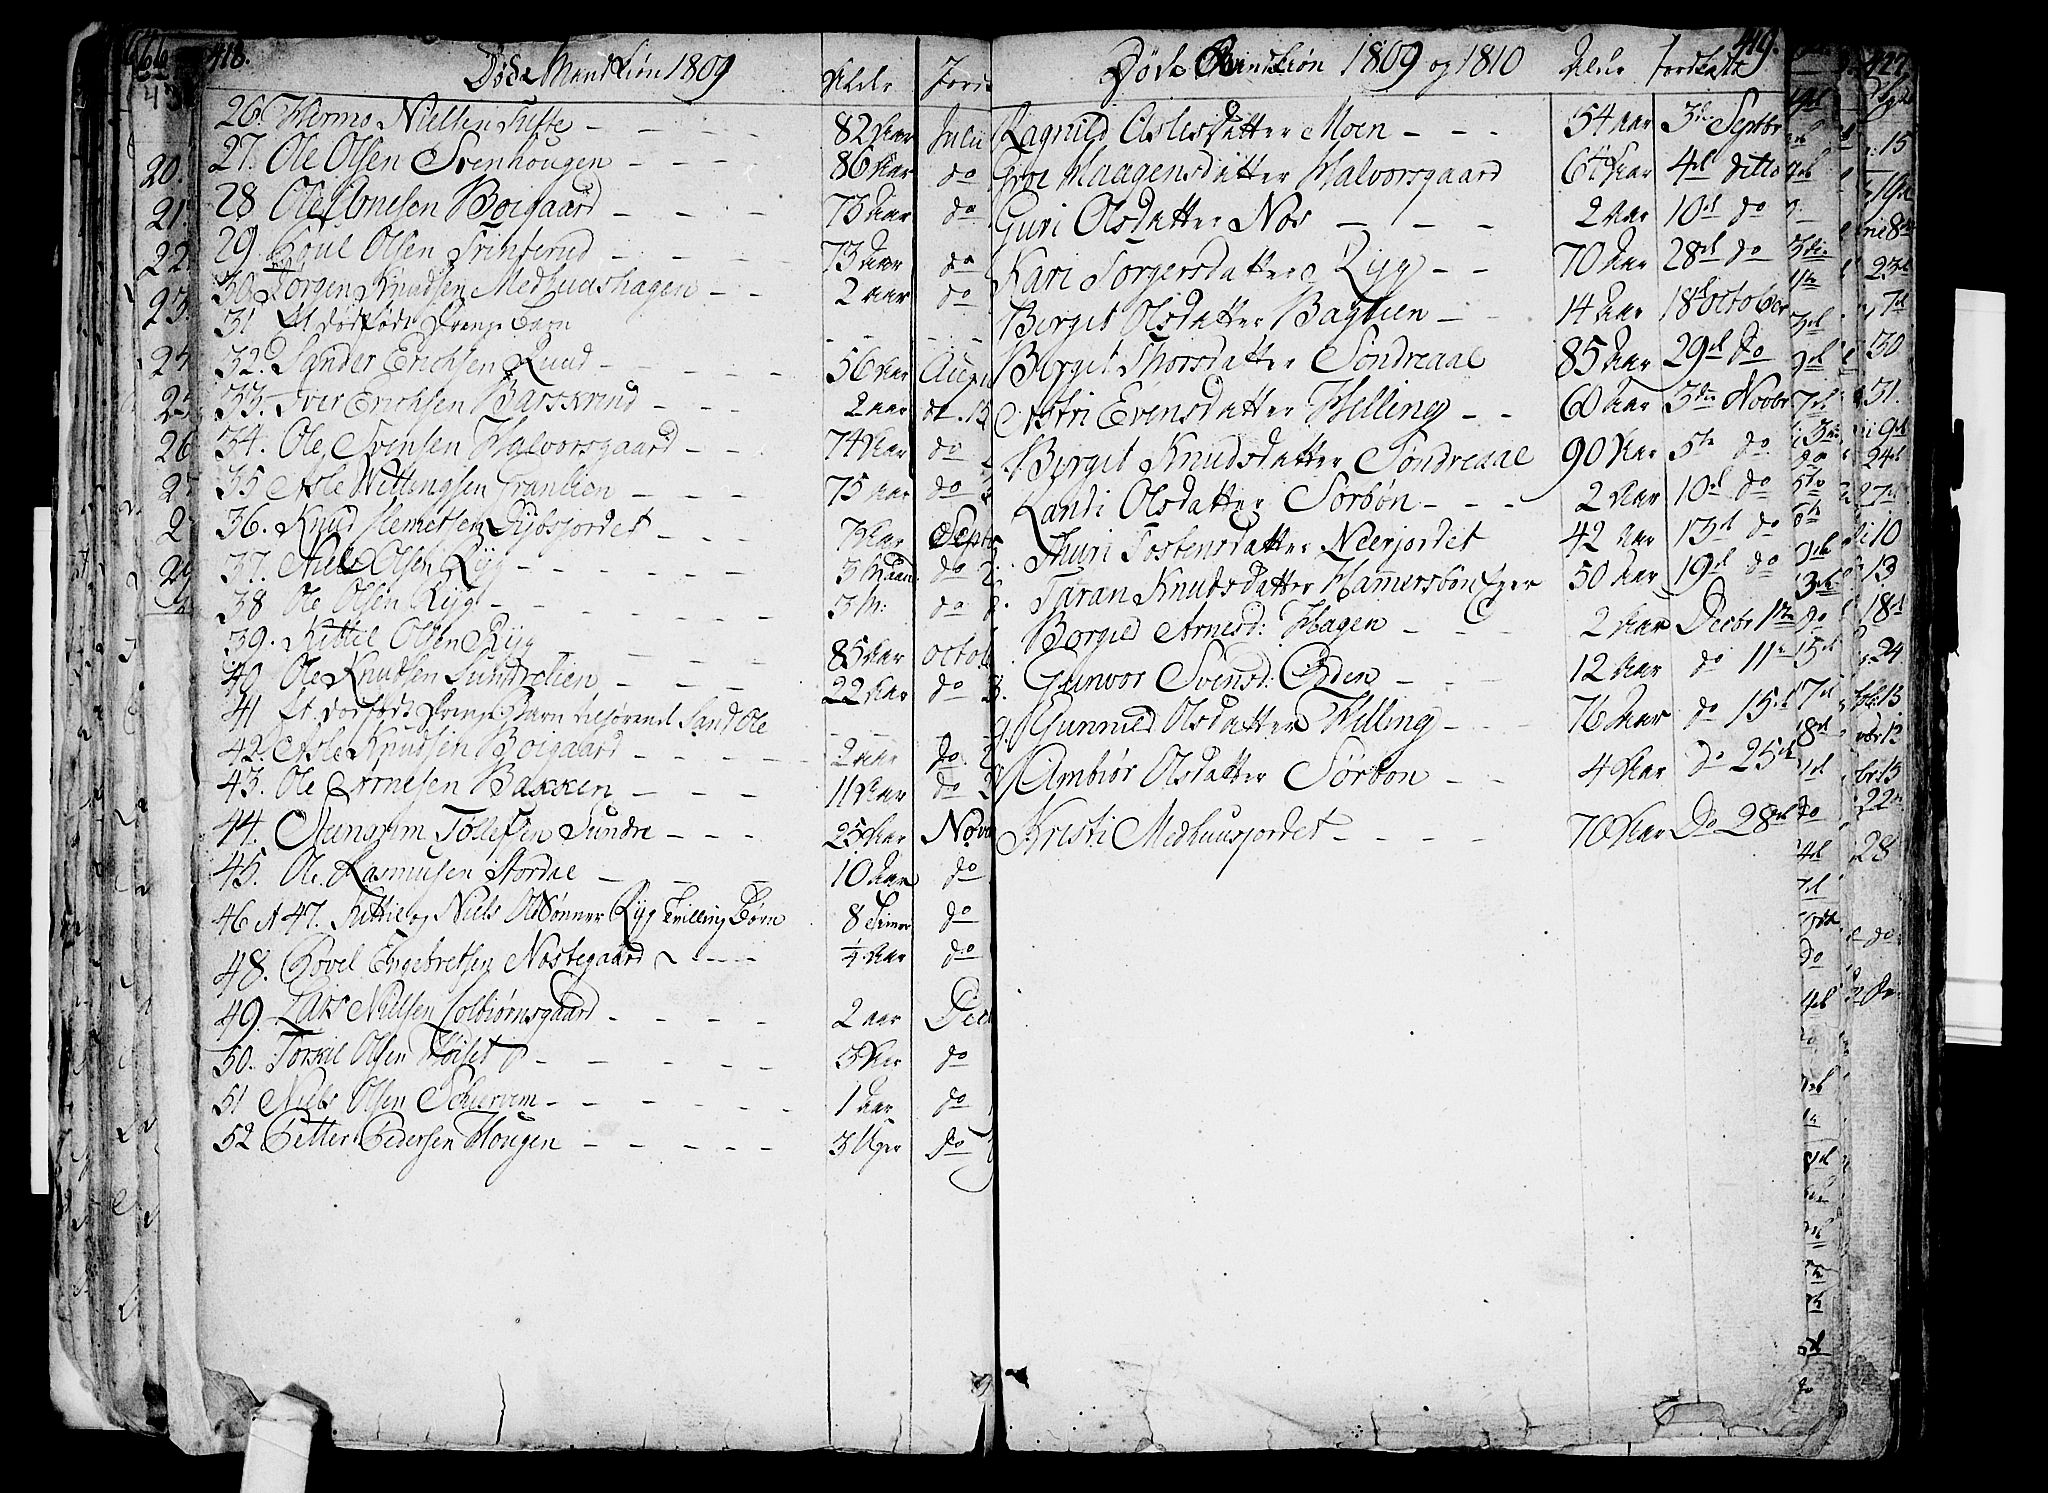 418.
Døde Mandkiøn 1809 Alder Jords
26. Hermo Nielsen Tufte - - - - 82 Aar Julii
27. Ole Olsen Svenhougen - - - 86 Aar do
28 Ole Arnesen Boigaard - - - - 73 Aar do
29. Eguil Olsen Trinterud - - - - 73 Aar do
30. Torgen Knudsen Medhuushagen - - 2 aar do
31 Et dødfødt Drenge Barn - - -
32. Sander Erichsen Ruud - - - - - 56 Aar Augu
33. Iver Erichsen Barskrud - - - - 2 aar do. 13
34. Ole Svensen Halvorsgaard - - 74 Aar do
35 Asle Wettingsen Granlien - - - - 75 Aar do
36. Knud Hermetsen Dybsjordet - - - 7 Aar Septb
37. Niels Olsen Ryg - - - - - - - 3 Maan do
38 Ole Olsen Ryg - - - - - - 3 M: do
39. Kittel Olsen Ryg - - - - 85 Aar Octob
40 Ole Knudsen Sundrelien - - - - 22 Aar do
41 Et dødfødt Drenge Barn tilhørend Sand Ole - - -
42. Asle Knudsen Boigaard - - - - - - 2 aar do
43. Ole Arnesen Bakken - - - - 11 Aar do
44. Steingrim Tollefsen Sundre - - - 25 Aar Nov
45. Ole Rasmusen Stordal - - - 10 Aar do
46 & 47. Kittil og Niels Olssønner Ryg Tvilling Børn 8 Timer do
48. Bovel Engebretsen Nostegaard - - - - 1/4 Aar do
49. Lars Nielsen Colbiørnsgaard - - - - 2 aar Dec
50. Torkil Olsen Høiset - - - - - 3 Aar do
51 Niels Olsen Schiervem - - - - - - 1 Aar do
52 Petter Pedersen Hougen - - - - - 3 Uger do
419.
Døde Qvindkiøn 1809 og 1810 Alder Jordkaste
Ragnild Aslesdatter Moen - - - 54 Aar 3die Septbr
Groe Haagensdatter Halvorsgaard 64 Aar 4de ditto
Guri Olsdatter Nos - - - - 2 Aar 10de do
Kari Torgersdatter Ryg - - 70 Aar 28de do
Berget Olsdatter Baglien - - 14 Aar 18de October
Berget Thorsdatter Sondreaal 85 Aar 29de do
Astri Evensdatter Helling - - 60 Aar 3die Novbr
Berget Knudsdatter Søndreaal 90 Aar 5te do
Randi Olsdatter Sorbøn - - - - 2 Aar 10de do
Thuri Tostensdatter Neerjordet 42 Aar 13de do
Taran Knudsdatter Hamersbøn Eger 50 Aar 19de do
Borgild Arnesd: Hagen - - - 2 Aar Decbr 1te
Gunvor Svensd: Ødden - - - - 12 Aar do 11te
Gunnild Olsdatter Helling - - - 76 Aar do 15de
Ambiør Olsdatter Sørbøn - - 4 Aar do 25de
Kristi Medhuusjordet - - - - 70 Aar do 28de